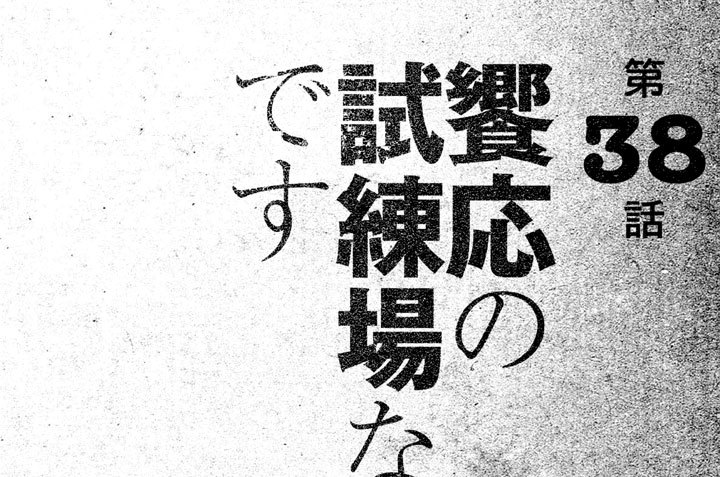 第38話
饗応の
試練場な
です